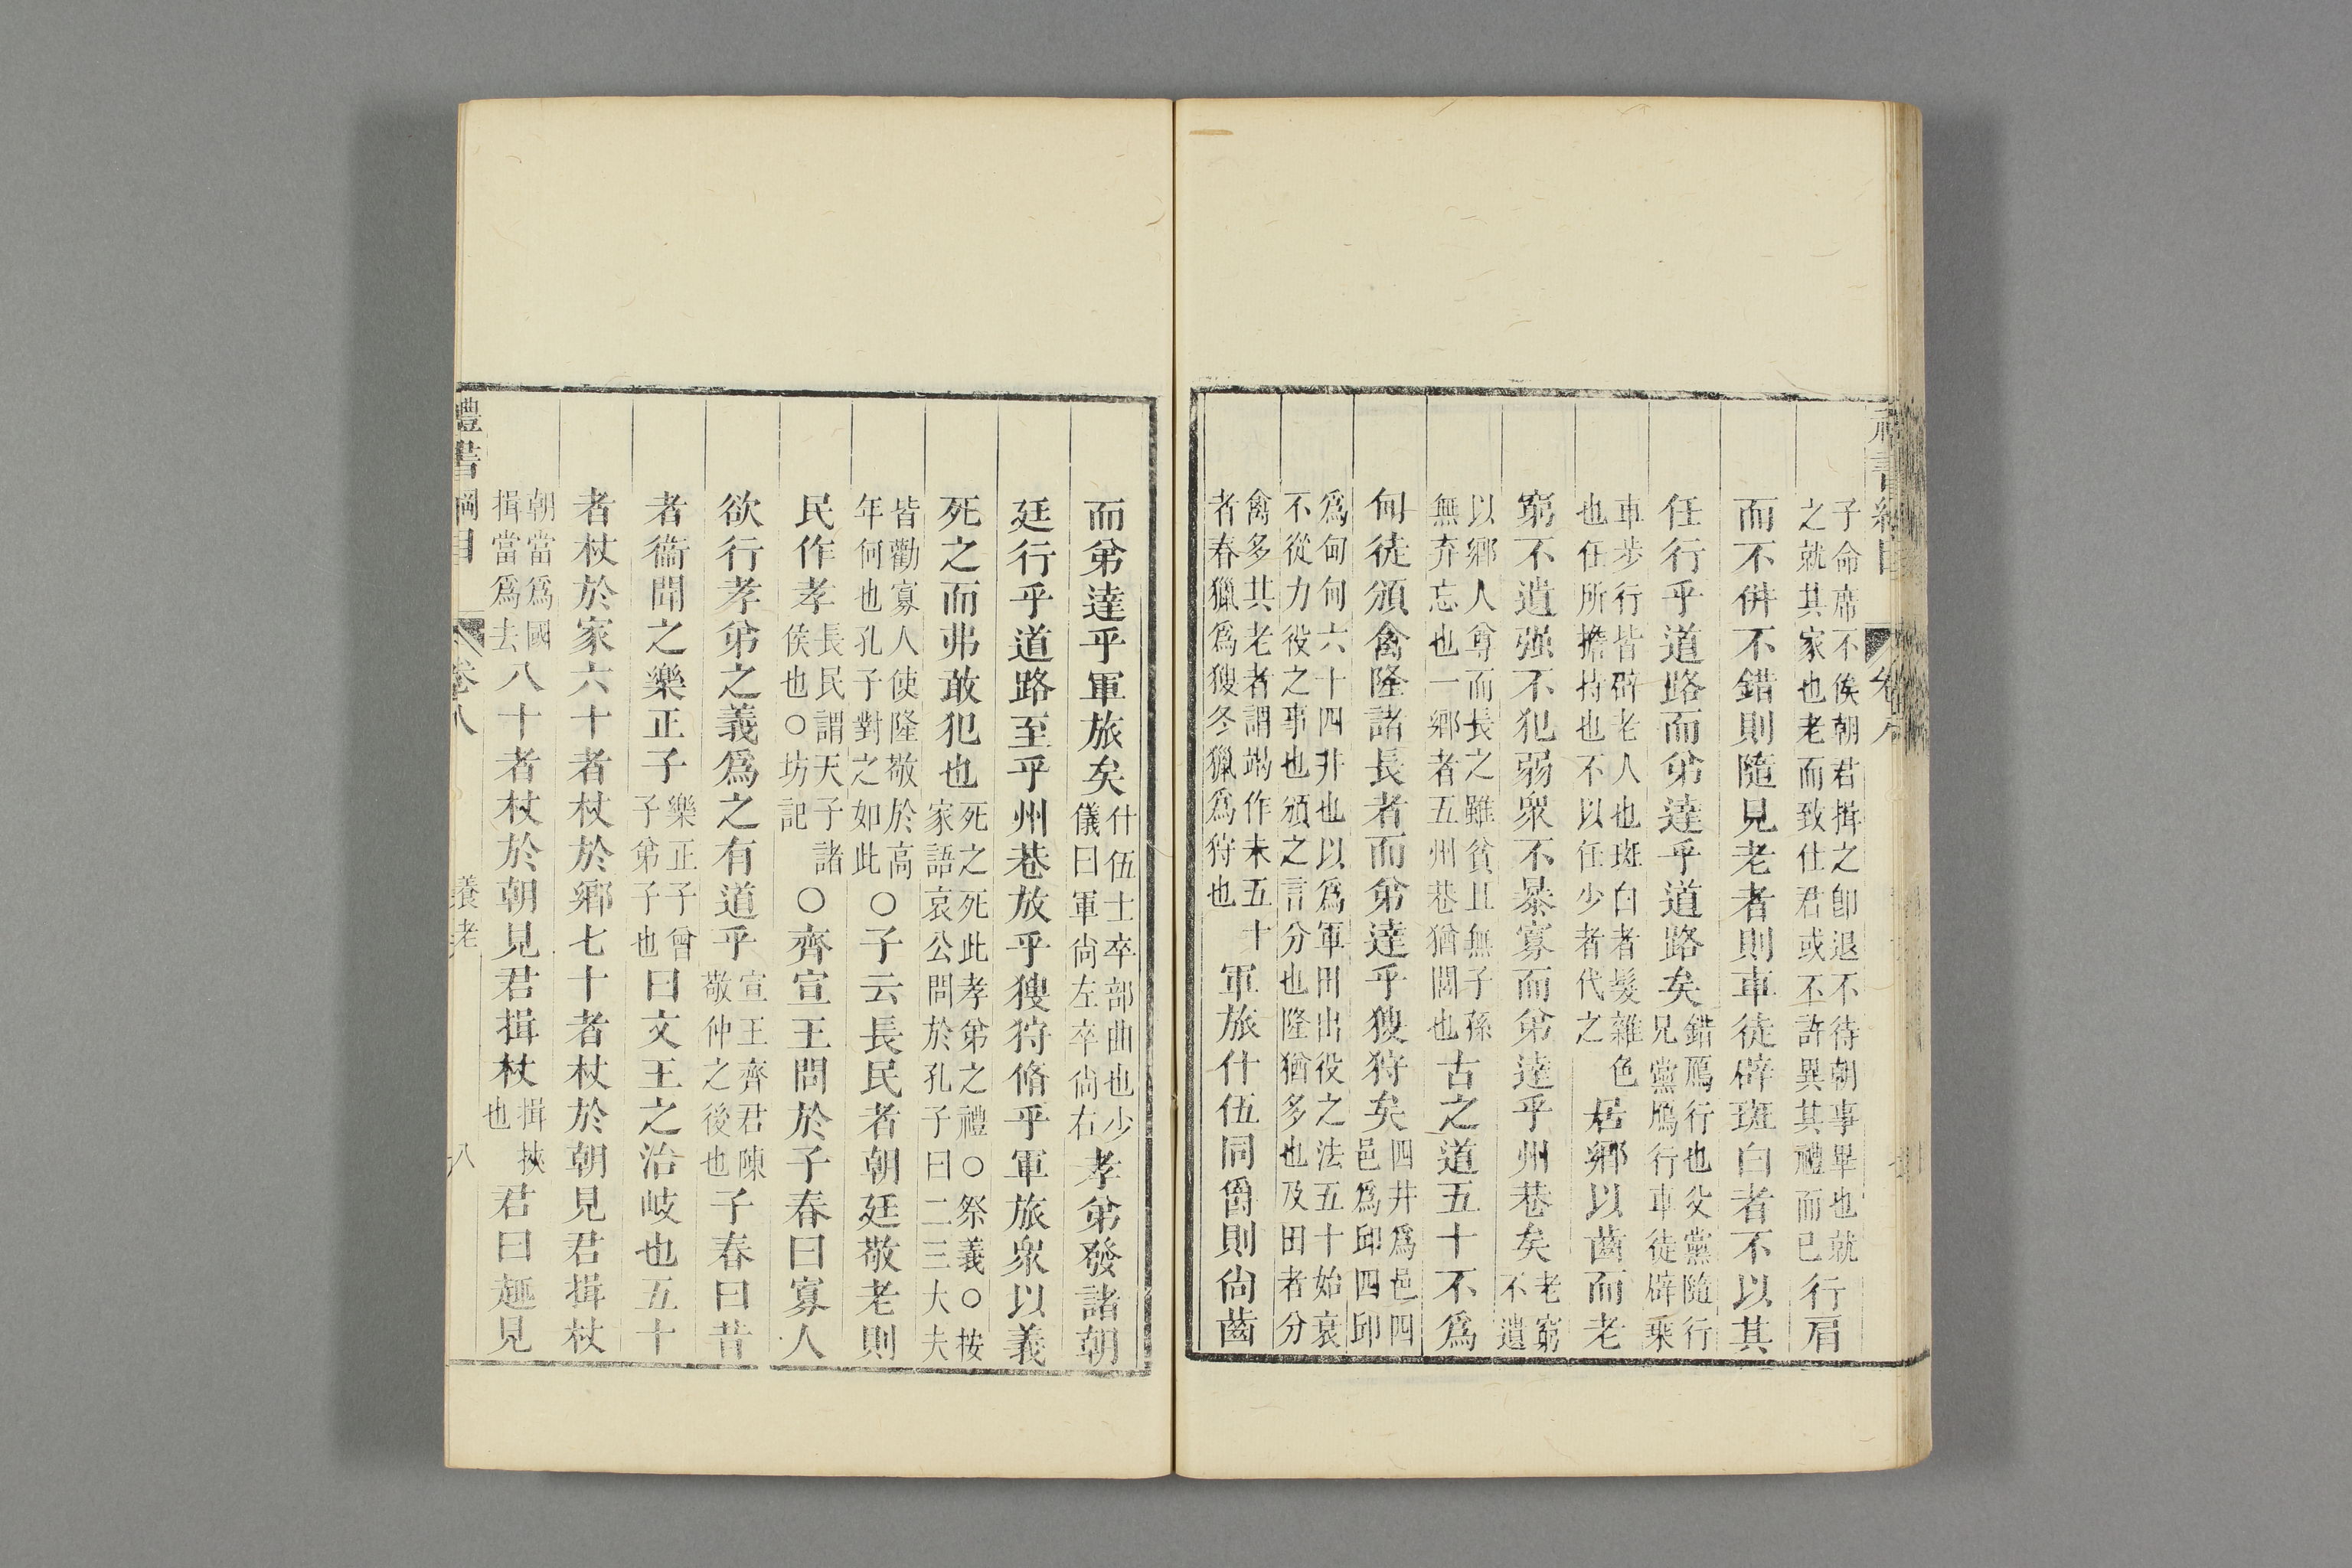 禮書綱目 卷八
子命席不俟朝君揖之卽退不待朝事畢也就之就其家也老而致仕君或不許異其禮而已行肩
而不併不錯則隨見老者則車徒辟斑白者不以其
任行乎道路而弟達乎道路矣錯鴈行也父黨隨行兄黨鴈行車徒辟乘
車步行皆辟老人也斑白者髮雜色也任所擔持也不以任少者代之居鄉以齒而老
窮不遺强不犯弱衆不暴寡而弟達乎州巷矣老窮不遺
以鄉人尊而長之雖貧且無子孫無弃忘也一鄉者五州巷猶閭也古之道五十不爲
甸徒頒禽隆諸長者而弟達乎獀狩矣四井爲邑四邑爲邱四邱
爲甸甸六十四井也以爲軍田出役之法五十始衰不從力役之事也頒之言分也隆猶多也及田者分
禽多其老者謂竭作未五十者春獵爲獀冬獵爲狩也軍旅什伍同爵則尚齒
而弟達乎軍旅矣什伍士卒部曲也少儀曰軍尚左卒尚右孝弟發諸朝
廷行乎道路至乎州巷放乎獀狩脩乎軍旅衆以義
死之而弗敢犯也死之死此孝弟之禮○祭義○按家語哀公問於孔子曰二三大夫
皆勸寡人使隆敬於高年何也孔子對之如此○子云長民者朝廷敬老則
民作孝長民謂天子諸侯也○坊記○齊宣王問於子春曰寡人
欲行孝弟之義爲之有道乎宣王齊君陳敬仲之後也子春曰昔
者衞聞之樂正子樂正子曾子弟子也曰文王之治岐也五十
者杖於家六十者杖於鄉七十者杖於朝見君揖杖
朝當爲國揖當爲去八十者杖於朝見君揖杖揖挾也君曰趣見
禮書綱目 卷八 養老 八